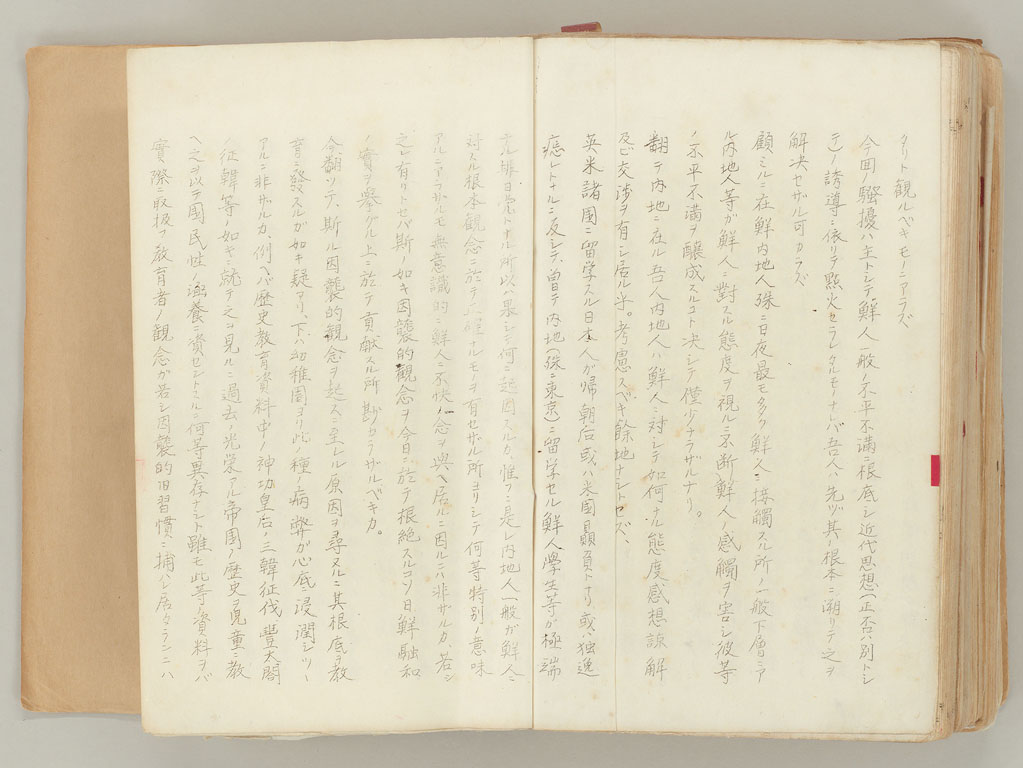 タリト観ルベキモノニアラズ
今回ノ騒擾ハ主トシテ鮮人一般ノ不平不満ニ根底シ近代思想(正否ハ別トシ
テ)ノ誘導ニ依リテ點火セラレタルモノナレバ吾人ハ先ヅ其ノ根本ニ溯リテ之ヲ
解决セザル可カラズ
顧ミルニ在鮮内地人殊ニ日夜最モ多ク鮮人ニ接觸スル所ノ一般下層ニア
ル内地人等ガ鮮人ニ對スル態度ヲ視ルニ不断鮮人ノ感觸ヲ害シ彼等
ノ不平不満ヲ醸成スルコト决シテ僅少ナラザルナリ。
翻テ内地ニ在ル吾人内地人ハ鮮人ニ対シテ如何ナル態度感想諒解
及ビ交渉ヲ有シ居ルヤ。考慮スベキ餘地ナシトセズ、
英米諸国ニ留学スル日本人ガ帰朝后或ハ米国贔負トナリ或ハ独逸
癌レトナルニ反シテ、曽テ内地(殊ニ東京)ニ留学セル鮮人學生等ガ極端
ナル排日党トナル所以ハ果シテ何ニ起因スルカ、惟フニ是レ内地人一般ガ鮮人ニ
対スル根本観念ニ於テ ナルモノヲ有セザル所ヨリシテ何等特別ノ意味
アルニアラザルモ無意識的ニ鮮人ニ不快ノ念ヲ與ヘ居ルニ因ルニハ非ザルカ、若シ
之レ有リトセバ斯ノ如キ因襲的観念ヲ今日ニ於テ根絶スルコソ日鮮融和
ノ實ヲ擧グル上ニ於テ貢献スル所尠カラザルベキカ。
今翻ツテ、斯ル因襲的観念ヲ起スニ至レル原因ヲ尋ヌルニ其根底ヲ教
育ニ發スルガ如キ疑アリ、下ハ幼稚園ヨリ此ノ種ノ病弊ガ心底ニ浸潤シツヽ
アルニ非ザルカ、例ヘバ歴史教育資料中ノ神功皇后ノ三韓征伐 豊太閤
征韓等ノ如キニ就テ之ヲ見ルニ過去ノ光栄アル帝国ノ歴史ヲ児童ニ教
ヘ之ヲ以テ国民性ノ涵養ニ資セントスルニ何等異存ナシト雖モ此等ノ資料ヲバ
實際取扱フ教育者ノ観念ガ若シ因襲的旧習慣ニ捕ハレ居タランニハ